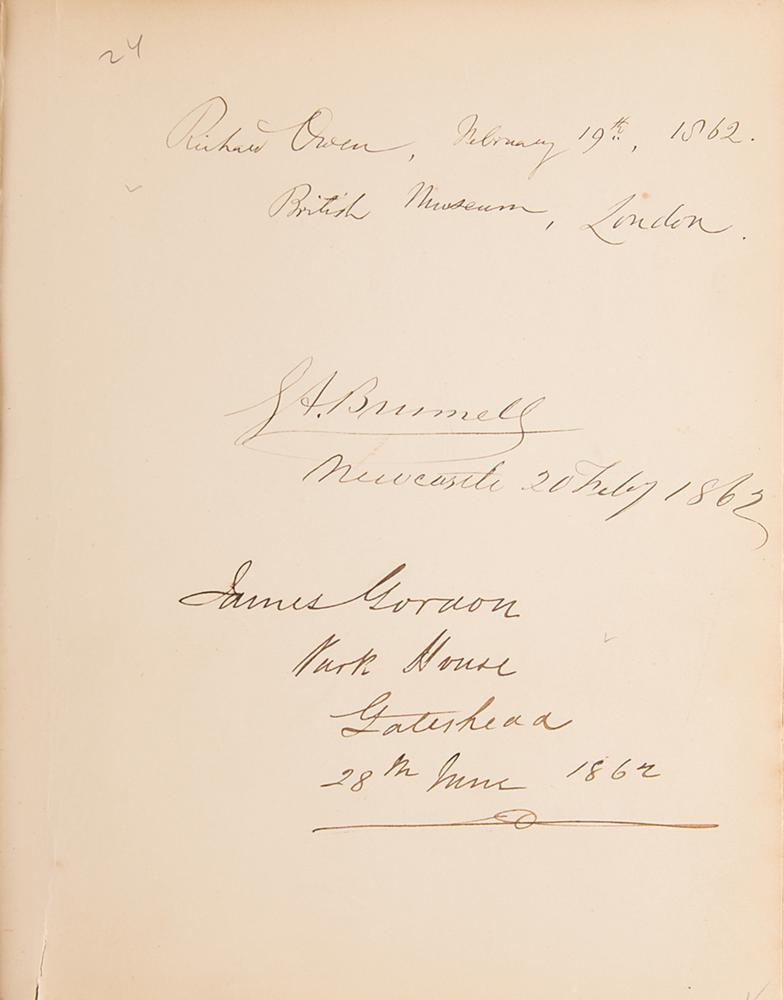 24
Richard Owen, February 19th, 1862.
British Museum, London.
G A. Brumell
Newcastle 20 Feby 1862
James Gordon
Park House
Gateshead
28th June 1862